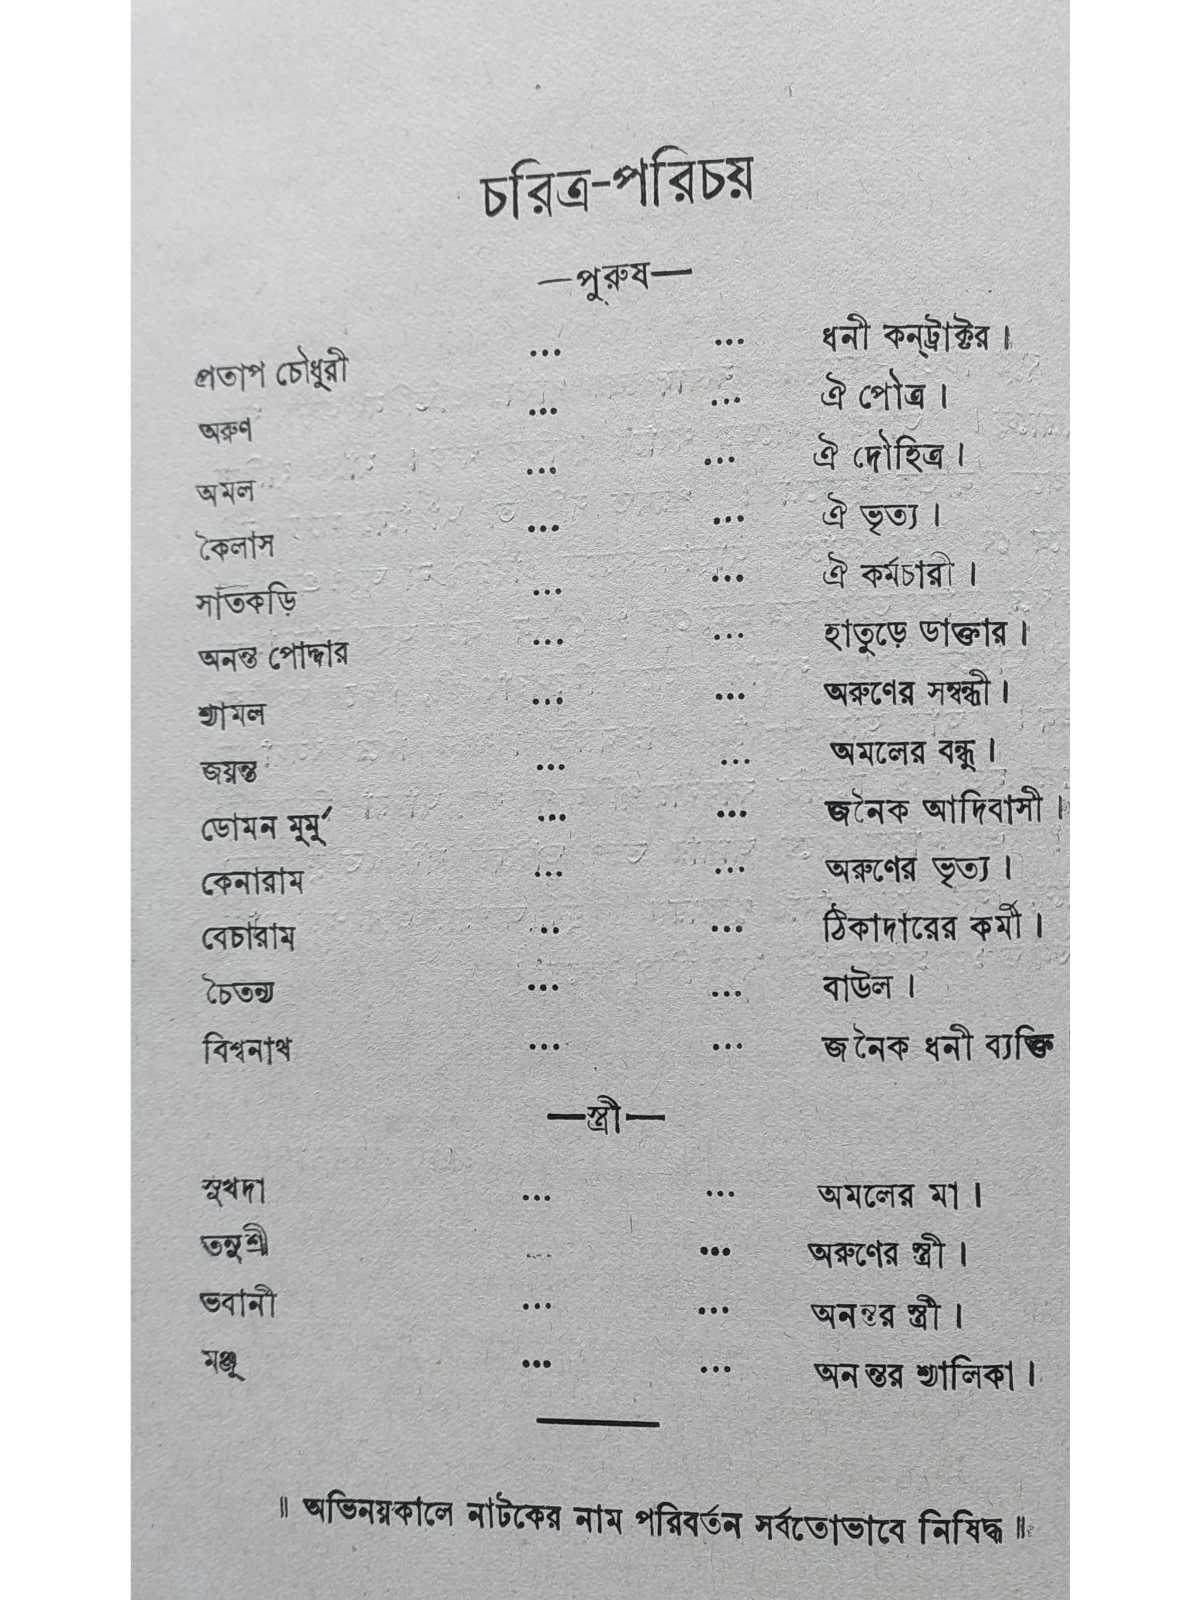 চরিত্র-পরিচয়
—পুরুষ—
প্রতাপ চৌধুরী ... ... ধনী কন্‌ট্রাক্টর ।
অরুণ ... ... ঐ পৌত্র ।
অমল ... ... ঐ দৌহিত্র ।
কৈলাস ... ... ঐ ভৃত্য ।
সাতকড়ি ... ... ঐ কর্মচারী ।
অনন্ত পোদ্দার ... ... হাতুড়ে ডাক্তার ।
শ্যামল ... ... অরুণের সম্বন্ধী ।
জয়ন্ত ... ... অমলের বন্ধু ।
ডোমন মুর্মু ... ... জনৈক আদিবাসী ।
কেনারাম ... ... অরুণের ভৃত্য ।
বেচারাম .. ... ঠিকাদারের কর্মী ।
চৈতন্য ... ... বাউল ।
বিশ্বনাথ ... ... জনৈক ধনী ব্যক্তি
—স্ত্রী—
সুখদা ... ... অমলের মা ।
তনুশ্রী ... ... অরুণের স্ত্রী ।
ভবানী ... ... অনন্তর স্ত্রী ।
মঞ্জু ... ... অনন্তর শ্যালিকা ।
॥ অভিনয়কালে নাটকের নাম পরিবর্তন সর্বতোভাবে নিষিদ্ধ ॥